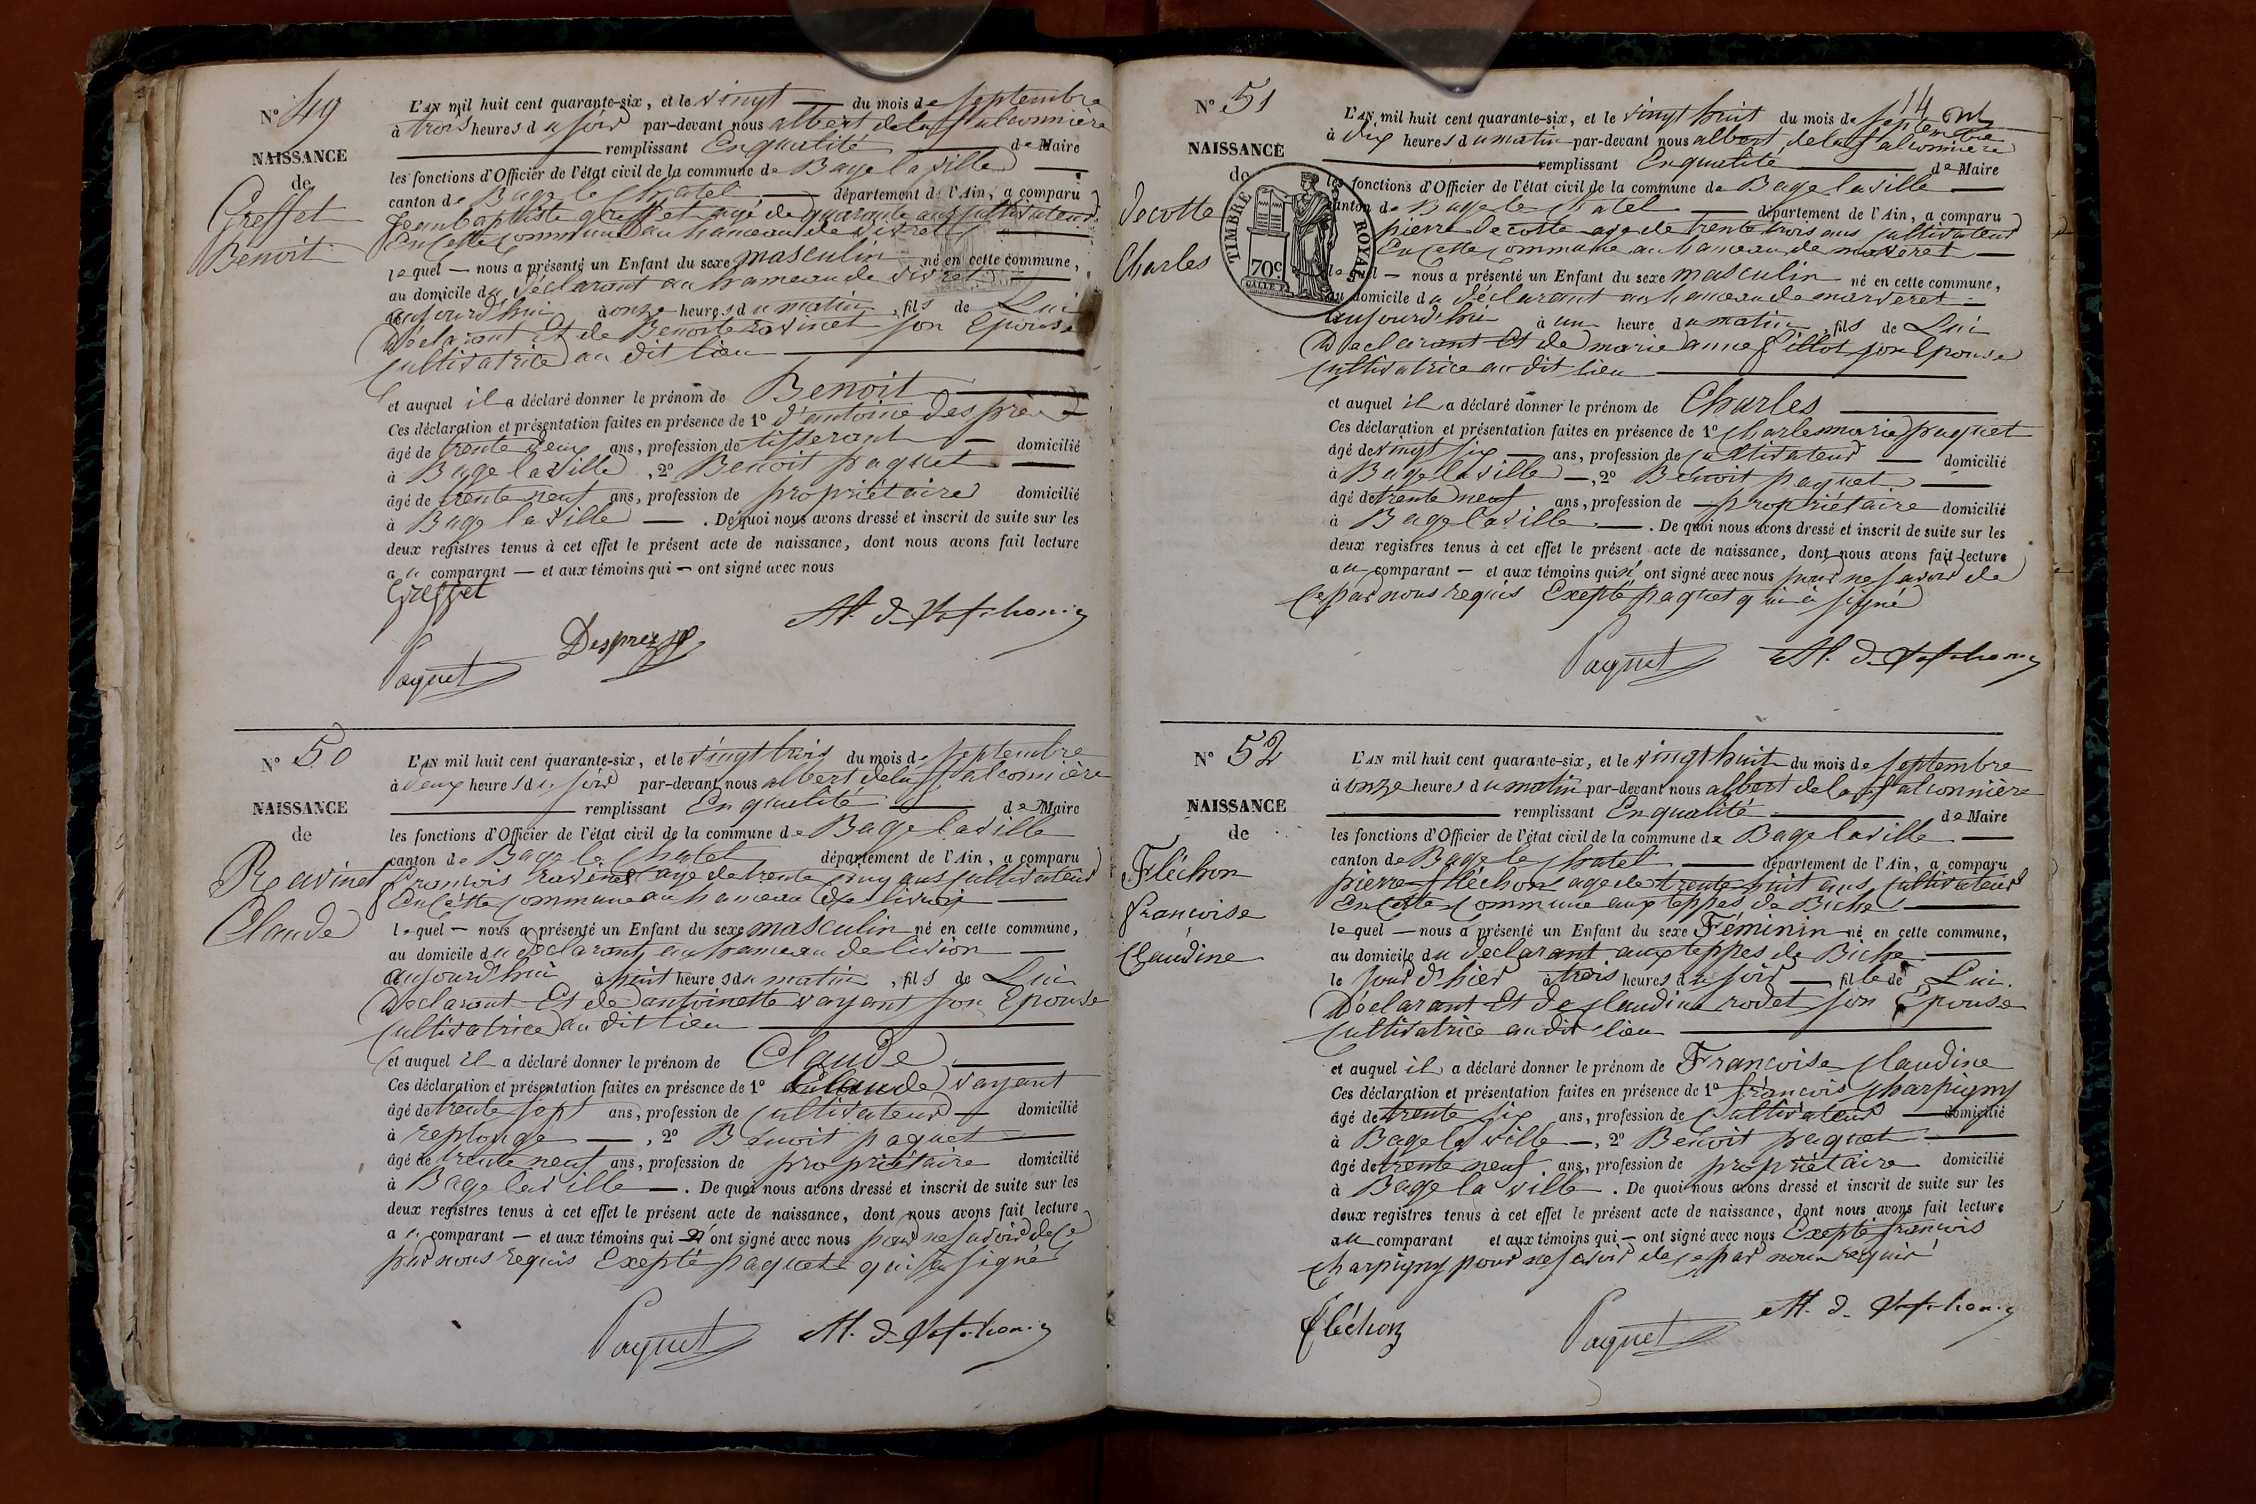 N° 49
NAISSANCE
de
Greffet
Benoit
L'AN mil huit cent quarante-six, et le vingt — du mois de septembre
à trois heures du soir par-devant nous albert de la falconnière
remplissant En qualité de Maire
les fonctions d'Officier de l'état civil de la commune de Bagé la ville
canton de Bagé le Chatel — département de l'Ain, a comparu
jean baptiste greffet agé de quarante ans cultivateur
En cette commune au hameau de
lequel — nous a présenté un Enfant du sexe masculin né en cette commune,
au domicile du déclarant au hameau de
aujourd'hui à onze heures du matin, fils de Lui
Déclarant Et de Benoite ravinet son Epouse
cultivatrice au dit lieu
et auquel il a déclaré donner le prénom de Benoit
Ces déclaration et présentation faites en présence de 1° d'antoine
âgé de trente deux ans, profession de tisserant — domicilié
à Bagé la ville, 2° Benoit paquet
âgé de trente neuf ans, profession de propriétaire domicilié
à Bagé la ville — . De quoi nous avons dressé et inscrit de suite sur les
deux registres tenus à cet effet le présent acte de naissance, dont nous avons fait lecture
au comparant — et aux témoins qui — ont signé avec nous
Greffet
Desprez
Paquet
N° 50
NAISSANCE
de
Ravinet
Claude
L'AN mil huit cent quarante-six, et le vingt trois du mois de septembre
à deux heures du soir par-devant nous albert de la falconnière
remplissant En qualité de Maire
les fonctions d'Officier de l'état civil de la commune de Bagé la ville
canton de Bagé le Chatel département de l'Ain, a comparu
francois ravinet agé de trente cinq ans cultivateur
En cette commune au hameau de
lequel — nous a présenté un Enfant du sexe masculin né en cette commune,
au domicile du déclarant au hameau de
aujourd'hui à huit heures du matin, fils de Lui
Déclarant Et de antoinette vayant son Epouse
cultivatrice au dit lieu
et auquel il a déclaré donner le prénom de Claude
Ces déclaration et présentation faites en présence de 1° claude vayant
âgé de trente sept ans, profession de cultivateur — domicilié
à replonge —, 2° Benoit paquet
âgé de trente neuf ans, profession de propriétaire domicilié
à Bagé la ville — . De quoi nous avons dressé et inscrit de suite sur les
deux registres tenus à cet effet le présent acte de naissance, dont nous avons fait lecture
au comparant — et aux témoins qui n'ont signé avec nous pour ne savoir de ce
par nous requis Exepté paquet qui a signé
Paquet
14
N° 51
NAISSANCE
de
Decotte
Charles
TIMBRE ROYAL
70c
L'AN mil huit cent quarante-six, et le vingt huit du mois de septembre
à dix heures du matin par-devant nous albert de la falconnière
remplissant En qualité de Maire
les fonctions d'Officier de l'état civil de la commune de Bagé la ville
canton de Bagé le Chatel — département de l'Ain, a comparu
pierre Decotte agé de trente trois ans cultivateur
En cette commune au hameau de marveret
lequel — nous a présenté un Enfant du sexe masculin né en cette commune,
au domicile du déclarant au hameau de marveret
aujourd'hui à un heure du matin, fils de Lui
Déclarant Et de marie anne fillot son Epouse
cultivatrice au dit lieu
et auquel il a déclaré donner le prénom de Charles
Ces déclaration et présentation faites en présence de 1° charles marie paquet
âgé de vingt six — ans, profession de cultivateur — domicilié
à Bagé la ville —, 2° Benoit paquet
âgé de trente neuf ans, profession de propriétaire domicilié
à Bagé la ville — . De quoi nous avons dressé et inscrit de suite sur les
deux registres tenus à cet effet le présent acte de naissance, dont nous avons fait lecture
au comparant — et aux témoins qui n'ont signé avec nous pour ne savoir de
ce par nous requis Exepté paquet qui à signé
Paquet
N° 52
NAISSANCE
de
Fléchon
francoise
Claudine
L'AN mil huit cent quarante-six, et le vingt huit du mois de septembre
à onze heures du matin par-devant nous albert de la falconnière
remplissant En qualité de Maire
les fonctions d'Officier de l'état civil de la commune de Bagé la ville
canton de Bagé le Chatel — département de l'Ain, a comparu
pierre fléchon agé de trente huit ans cultivateur
En cette commune aux teppes de Biche
lequel — nous a présenté un Enfant du sexe Féminin né en cette commune,
au domicile du déclarant aux teppes de Biche
le jour d'hier à trois heures du soir — fille de Lui
Déclarant Et de claudine rodet son Epouse
cultivatrice au dit lieu
et auquel il a déclaré donner le prénom de Francoise claudine
Ces déclaration et présentation faites en présence de 1° francois charpigny
âgé de trente six ans, profession de cultivateur — domicilié
à Bagé la ville —, 2° Benoit paquet
âgé de trente neuf ans, profession de propriétaire domicilié
à Bagé la ville . De quoi nous avons dressé et inscrit de suite sur les
deux registres tenus à cet effet le présent acte de naissance, dont nous avons fait lecture
au comparant et aux témoins qui — ont signé avec nous Exepté francois
charpigny pour ne savoir de ce par nous requis
fléchon
Paquet